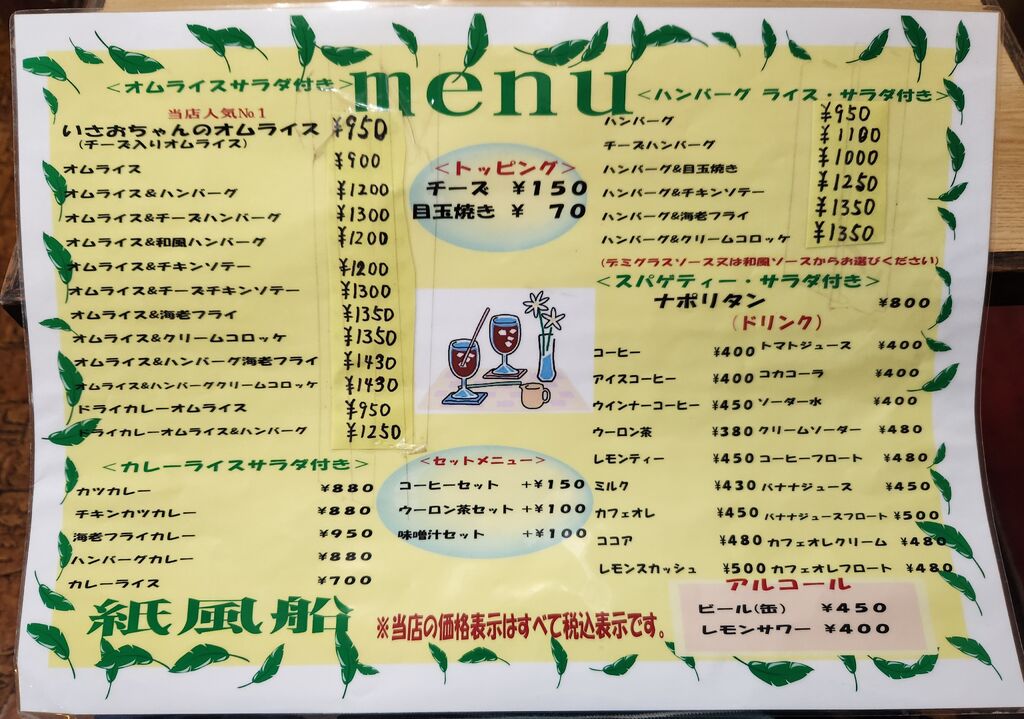 menu
<オムライスサラダ付き>
当店人気№1
いさおちゃんのオムライス ¥950
(チーズ入りオムライス)
オムライス ¥900
オムライス&ハンバーグ ¥1200
オムライス&チーズハンバーグ ¥1300
オムライス&和風ハンバーグ ¥1200
オムライス&チキンソテー ¥1200
オムライス&チーズチキンソテー ¥1300
オムライス&海老フライ ¥1350
オムライス&クリームコロッケ ¥1350
オムライス&ハンバーグ海老フライ ¥1430
オムライス&ハンバーグクリームコロッケ ¥1430
ドライカレーオムライス ¥950
ドライカレーオムライス&ハンバーグ ¥1250
<カレーライスサラダ付き>
カツカレー ¥880
チキンカツカレー ¥880
海老フライカレー ¥950
ハンバーグカレー ¥880
カレーライス ¥700
<トッピング>
チーズ ¥150
目玉焼き ¥ 70
<セットメニュー>
コーヒーセット +¥150
ウーロン茶セット +¥100
味噌汁セット +¥100
<ハンバーグ ライス・サラダ付き>
ハンバーグ ¥950
チーズハンバーグ ¥1100
ハンバーグ&目玉焼き ¥1000
ハンバーグ&チキンソテー ¥1250
ハンバーグ&海老フライ ¥1350
ハンバーグ&クリームコロッケ ¥1350
(デミグラスソース又は和風ソースからお選びください)
<スパゲティー・サラダ付き>
ナポリタン ¥800
(ドリンク)
コーヒー ¥400 トマトジュース ¥400
アイスコーヒー ¥400 コカコーラ ¥400
ウインナーコーヒー ¥450 ソーダー水 ¥400
ウーロン茶 ¥380 クリームソーダー ¥480
レモンティー ¥450 コーヒーフロート ¥480
ミルク ¥430 バナナジュース ¥450
カフェオレ ¥450 バナナジュースフロート ¥500
ココア ¥480 カフェオレクリーム ¥480
レモンスカッシュ ¥500 カフェオレフロート ¥480
アルコール
ビール(缶) ¥450
レモンサワー ¥400
紙風船
※当店の価格表示はすべて税込表示です。